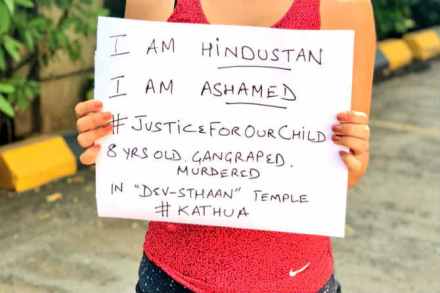 I AM HINDUSTAN
I AM ASHAMED
#JUSTICEFOROURCHILD
8 YRS OLD. GANGRAPED.
MURDERED
IN "DEV-STHAAN" TEMPLE
# KATHUA